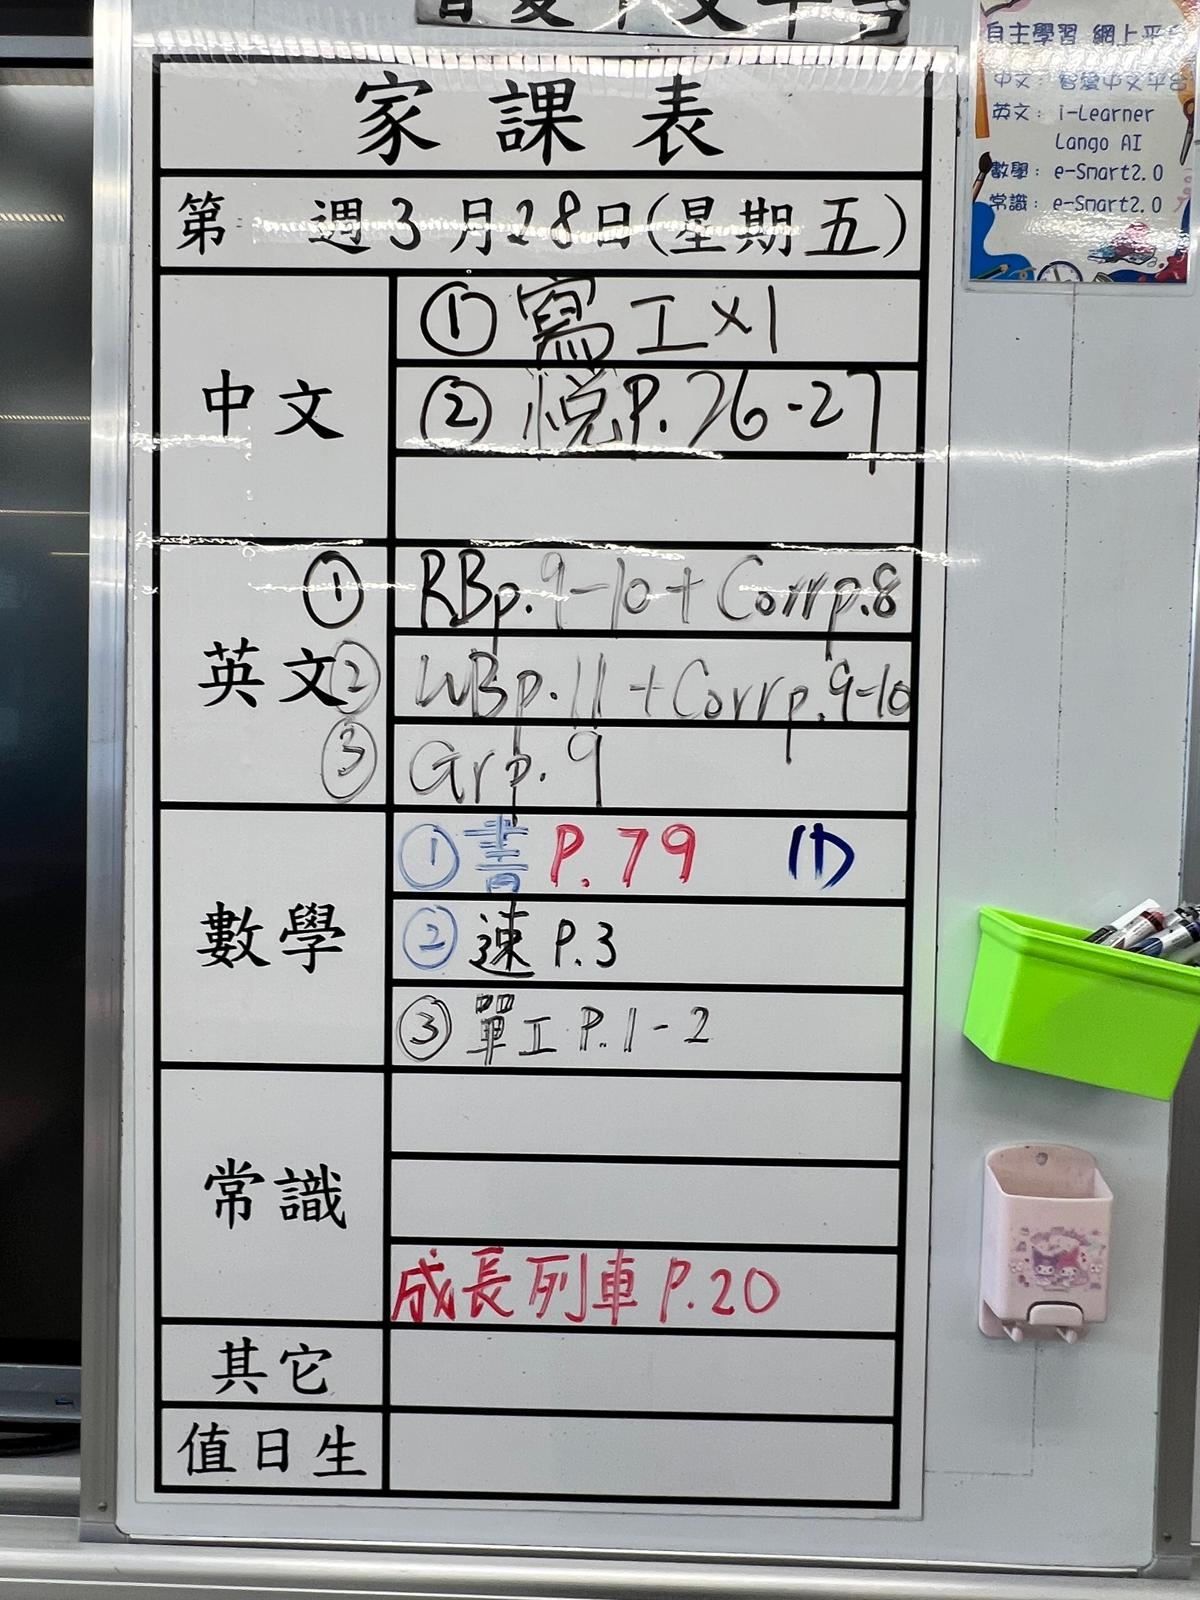 家課表
第 週3月28日(星期五)
中文
① 寫工×1
② 悅P.26-27
英文
① RBp.9-10+Corrp.8
② WBp.11+Corrp.9-10
③ Grp.9
數學
① 書 P.79 (1)
② 速 P.3
③ 單工 P.1-2
常識
成長列車 P.20
其它
值日生
自主學習 網上平台
中文: 智愛中文平台
英文: i-Learner
Lango AI
數學: e-Smart2.0
常識: e-Smart2.0